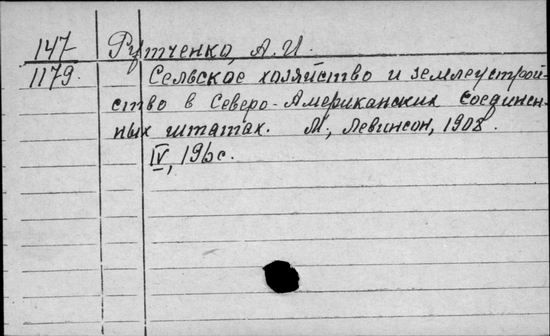 147 Рутченко, А.И.
1179. Сельское хозяйство и землеустрой-
ство в Северо-Американских Соединен-
ных штатах. М., Левинсон, 1908.
IV, 196с.